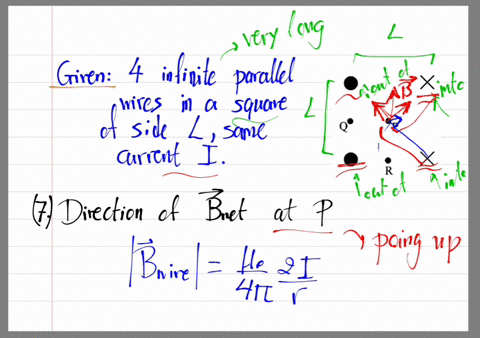 very long
Given: 4 infinite parallel
wires in a square
of side L, same
current I.
L
L
out of
into
B
Q
P
R
out of
into
(7.) Direction of B⃗net at P
poing up
|B⃗wire| = μ₀/4π 2I/r